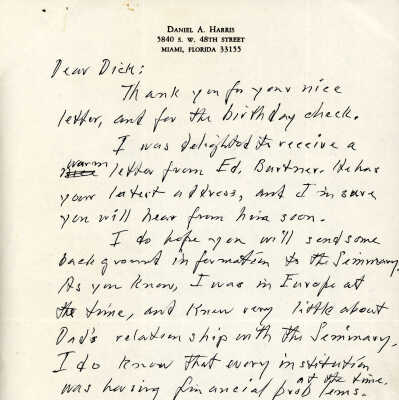 DANIEL A. HARRIS
5840 S. W. 48TH STREET
MIAMI, FLORIDA 33155
Dear Dick:
Thank you for your nice
letter, and for the birthday check.
I was delighted to receive a
warm
letter from Ed. Burtner. He has
your latest address, and I'm sure
you will hear from him soon.
I do hope you will send some
background information to the Seminary.
As you know, I was in Europe at
the time, and knew very little about
Dad's relationship with the Seminary.
I do know that every institution
was having financial problems.
at the time.